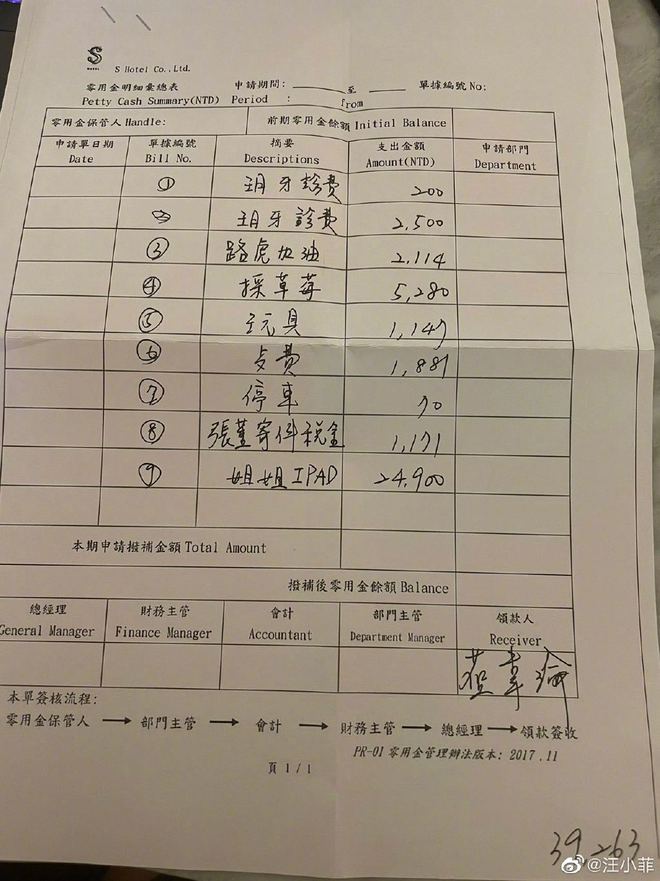 S
HOTEL
S Hotel Co.,Ltd.
零用金明細彙總表 申請期間: 至 單據編號No:
Petty Cash Summary(NTD) Period : from
零用金保管人Handle: 前期零用金餘額Initial Balance
申請單日期 單據編號 摘要 支出金額 申請部門
Date Bill No. Descriptions Amount(NTD) Department
① 玥牙診費 200
② 玥牙診費 2,500
③ 路虎加油 2,114
④ 採草莓 5,280
⑤ 玩具 1,147
⑥ 費 1,881
⑦ 停車 70
⑧ 張董寄件稅金 1,171
⑨ 姐姐IPAD 24,900
本期申請撥補金額Total Amount
撥補後零用金餘額Balance
總經理 財務主管 會計 部門主管 領款人
General Manager Finance Manager Accountant Department Manager Receiver
本單簽核流程:
零用金保管人 → 部門主管 → 會計 → 財務主管 → 總經理 → 領款簽收
PR-01零用金管理辦法版本: 2017.11
頁 1 / 1
39,263
@汪小菲